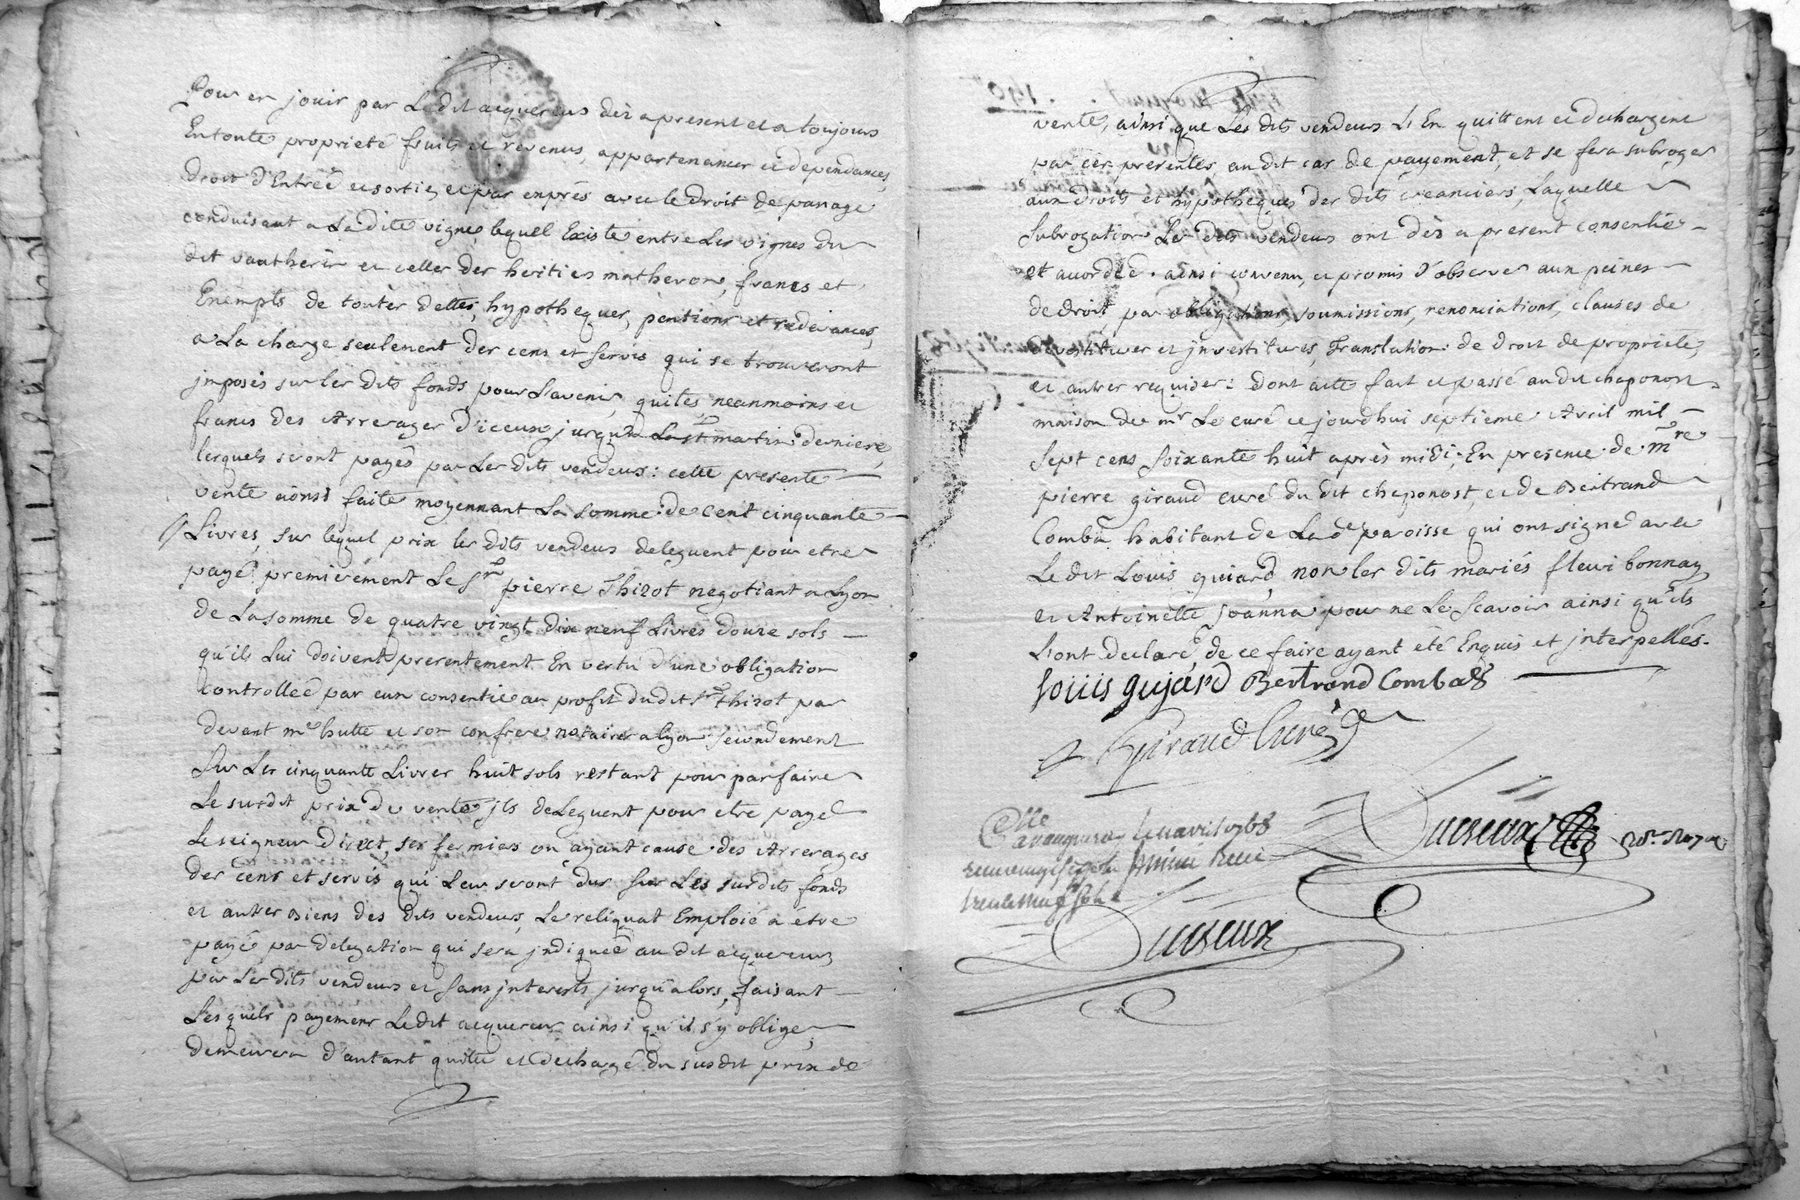 Pour en jouir par Ledit acquereur dès a present et a toujours
En toute proprieté fruits et revenus, appartenances et dependances,
droit d'Entrée et sortie, et par exprés avec le droit de passage
conduisant a Ladite vigne, lequel Existe entre Les vignes du
dit vautherin et celles des heritiers matheron, francs et
Exempts de toutes dettes, hypotheques, pentions et redevances,
a La charge seulement des cens et servis qui se trouveront
jmposés sur les dits fonds pour L'avenir, quites neanmoins et
francs des Arrerages d'iceux jusqu'a La st martin derniere,
lesquels seront payés par Les dits vendeurs: cette presente
vente ainsi faite moyennant La somme de cent cinquante
Livres, sur lequel prix les dits vendeurs deleguent pour etre
payé premierement Le Sr pierre Thizot negotiant a Lyon
de La somme de quatre vingt dix neuf Livres douze sols
qu'ils Lui doivent presentement En vertu d'une obligation
controllée par eux consentie au profit dudit Sr thizot par
devant me hutte et son confrere notaires a lyon, secondement
Sur Les cinquante Livres huit sols restant pour parfaire
Le susdit prix de vente, jls deleguent pour etre payé
Le seigneur Direct, ses fermiers ou ayant cause des Arrerages
des cens et servis qui Leur seront dus sur Les susdits fonds
et autres biens des dits vendeurs, Le reliquat Emploié a être
payé par delegation qui sera jndiquée au dit acquereur,
par Les dits vendeurs et sans jnterests jusqu'alors, faisant
Lesquels payemens Ledit acquereur ainsi qu'il s'y oblige,
demeurera d'autant quitte et dechargé du susdit prix de
vente, ainsi que Les dits vendeurs L'En quittent et dechargent
par ces presentes, audit cas de payement et se fera subroger
aux droits et hypotheques des dits creanciers, Laquelle
Subrogation Les dits vendeurs ont dès a present consentie
et accordée. ainsi convenu, et promis d'observer aux peines
de droit, par obligations, soumissions, renonciations, clauses de
devestitures et jnvestitures, Translation de droit de proprieté,
et autres requises: Dont acte fait et passé audit chaponost
maison de mr Le curé ce jourdhui septieme Avril mil
Sept cens soixante huit après midi; En presence de mre
pierre giraud curé du dit chaponost, et de Bertrand
Comba habitant de La de paroisse qui ont signé avec
Le dit Louis guiard, non les dits mariés fleuri bonnay
et Antoinette Joanna pour ne Le Scavoir ainsi qu'ils
L'ont declaré, de ce faire ayant été Enquis et jnterpellés.
Louis gujard Bertrand Combas
Giraud Curé
Duvieux
Duvieux